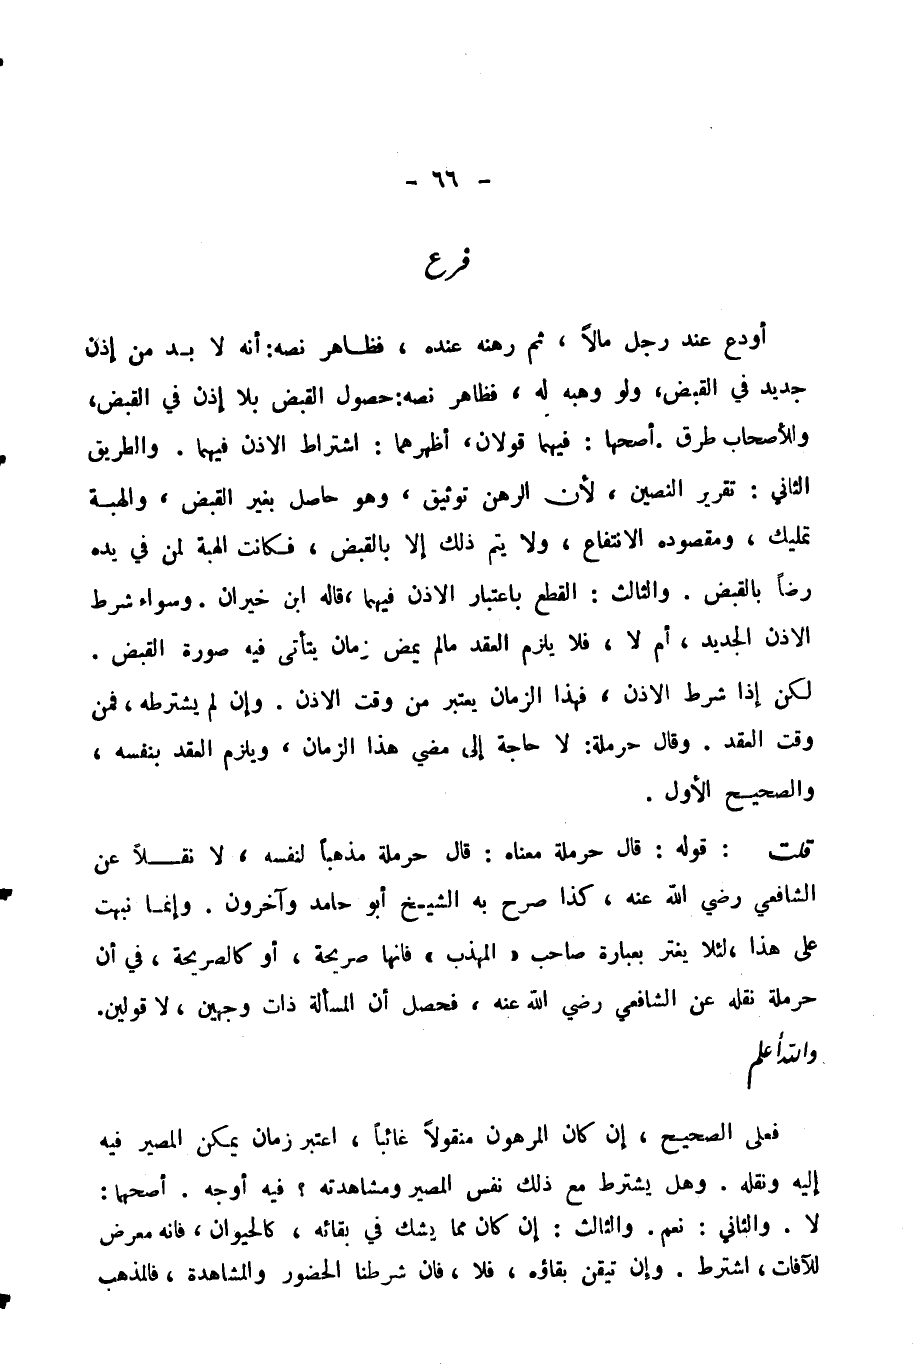 - ٦٦ -
فرع
أودع عند رجل مالاً ، ثم رهنه عنده ، فظـاهر نصه: أنه لا بـد من إذن
جديد في القبض، ولو وهبه له ، فظاهر نصه: حصول القبض بلا إذن في القبض،
وللأصحاب طرق . أصحها : فيهما قولان، أظهرهما : اشتراط الاذن فيهما . والطريق
الثاني : تقرير النصين ، لأن الرهن توثيق ، وهو حاصل بغير القبض ، والهبـة
تمليك ، ومقصوده الانتفاع ، ولا يتم ذلك إلا بالقبض ، فـكانت الهبة لمن في يده
رضاً بالقبض . والثالث : القطع باعتبار الاذن فيهما ، قاله ابن خيران . وسواء شرط
الاذن الجديد ، أم لا ، فلا يلزم العقد مالم يمض زمان يتأتى فيه صورة القبض .
لكن إذا شرط الاذن ، فهذا الزمان يعتبر من وقت الاذن . وإن لم يشترطه ، فمن
وقت العقد . وقال حرملة: لا حاجة إلى مضي هذا الزمان ، ويلزم العقد بنفسه ،
والصحيـح الأول .
قلت : قوله : قال حرملة معناه : قال حرملة مذهباً لنفسه ، لا نقـلاً عن
الشافعي رضي الله عنه ، كذا صرح به الشيـخ أبو حامد وآخرون . وإنمـا نبهت
على هذا ، لئلا يغتر بعبارة صاحب « المهذب » فانها صريحة ، أو كالصريحة ، في أن
حرملة نقله عن الشافعي رضي الله عنه ، فحصل أن المسألة ذات وجهين ، لا قولين.
والله أعلم
فعلى الصحيـح ، إن كان المرهون منقولاً غائباً ، اعتبر زمان يمـكن المصير فيه
إليه ونقله . وهل يشترط مع ذلك نفس المصير ومشاهدته ؟ فيه أوجه . أصحها :
لا . والثاني : نعم. والثالث : إن كان مما يشك في بقائه ، كالحيوان ، فانه معرض
للآفات ، اشترط . وإن تيقن بقاؤه ، فلا ، فان شرطنا الحضور والمشاهدة ، فالمذهب